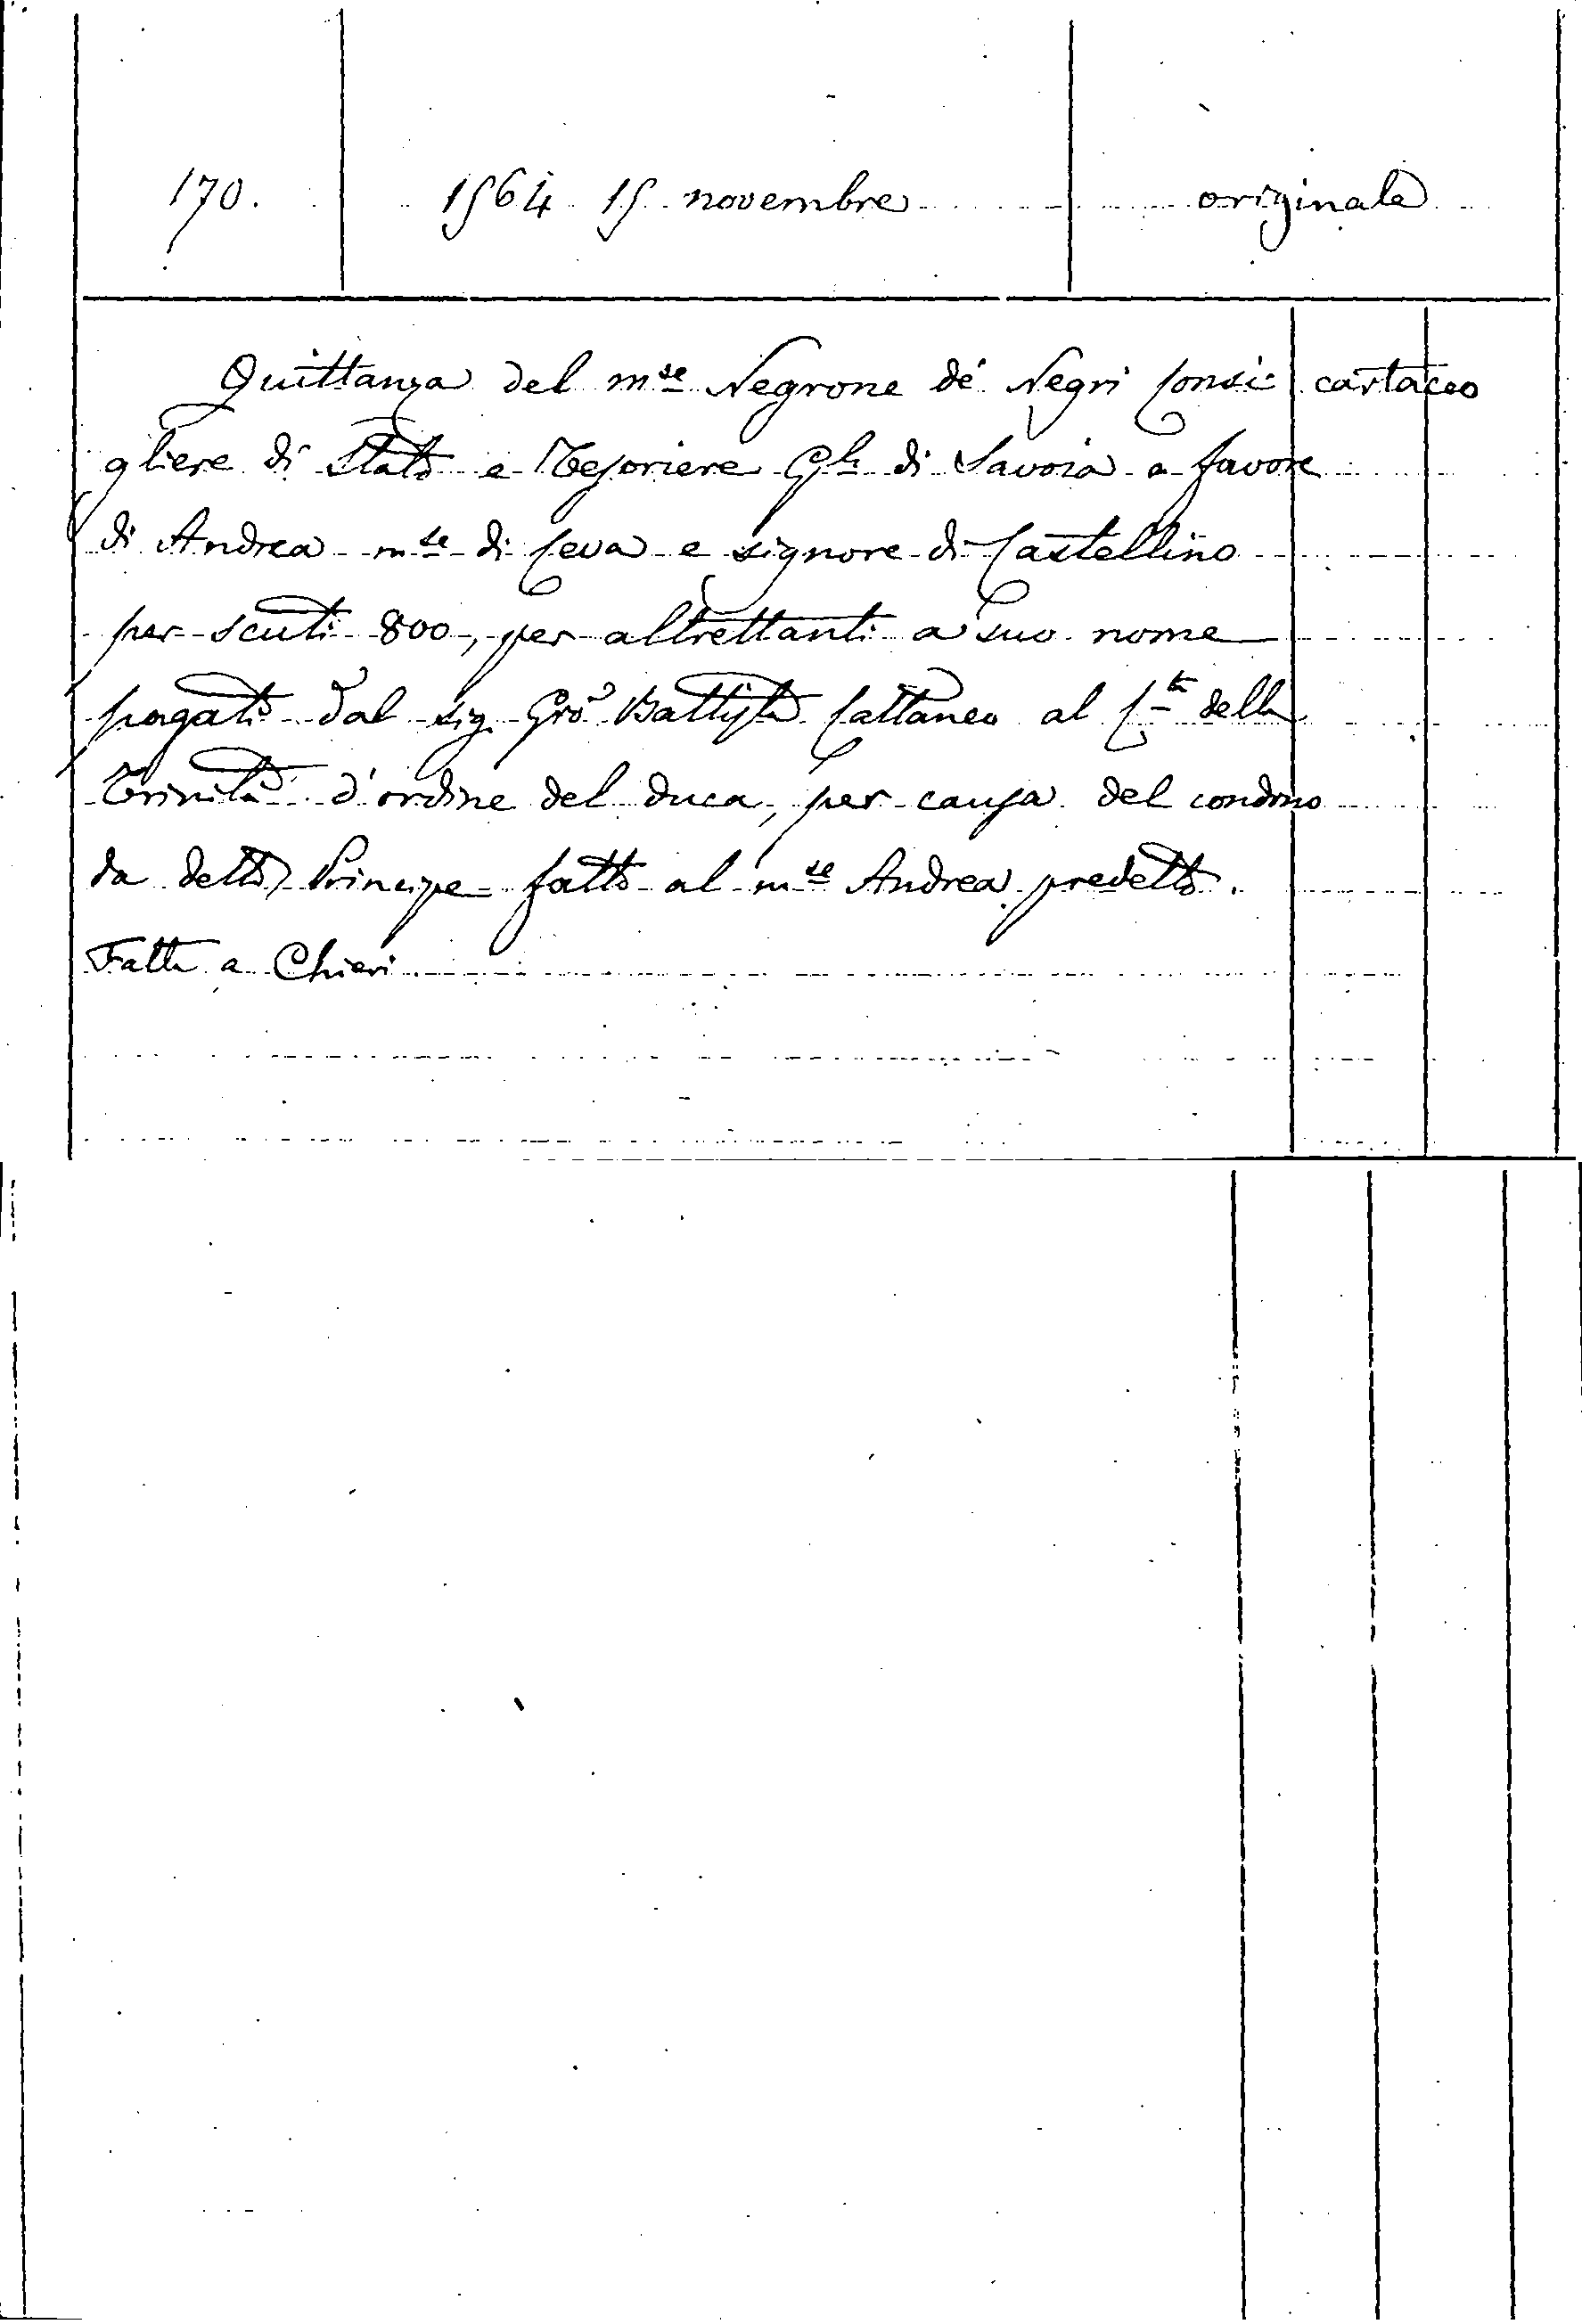 170. 1564 15 novembre originale
Quittanza del m.se Negrone de' Negri Consi- cartaceo
gliere di Stato e Tesoriere G.le di Savoia a favore
di Andrea m.se di Ceva e signore di Castellino
per scuti 800, per altrettanti a suo nome
pagati dal sig. Gio Battista Cattaneo al C.te della
Trinità d'ordine del duca, per causa del condono
da detto Principe fatto al m.se Andrea predetto.
Fatta a Chieri